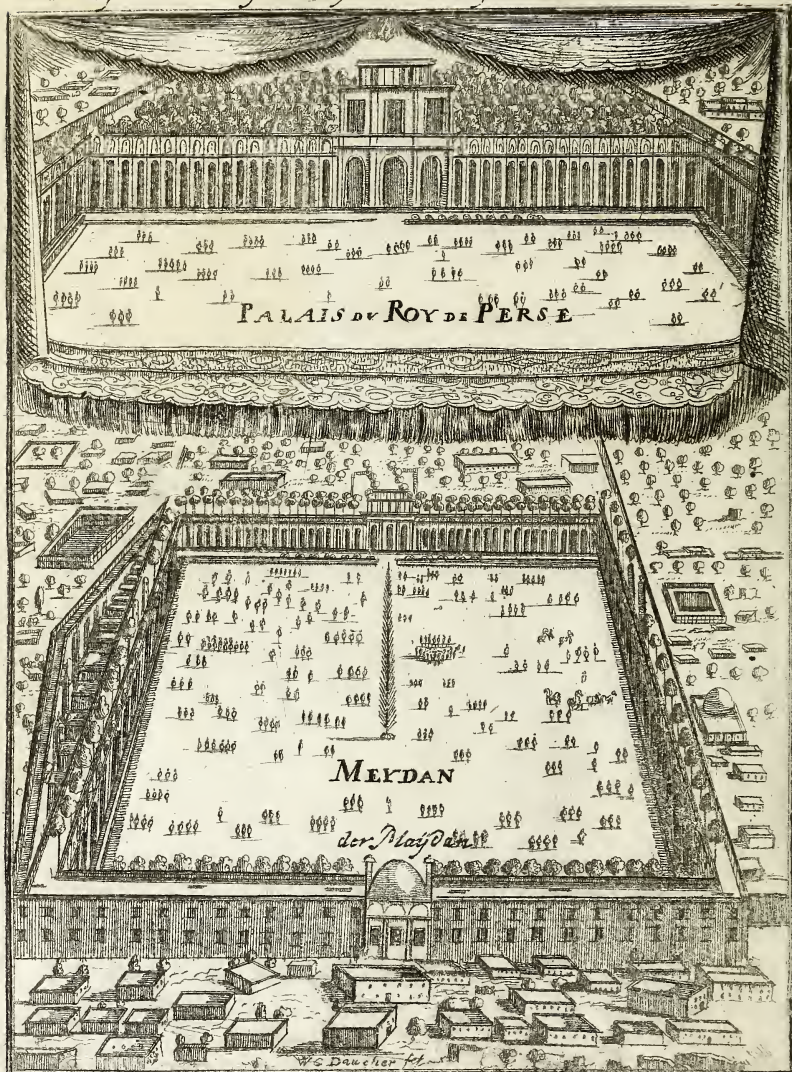 PALAIS DV ROY DE PERSE
MEYDAN
der Maÿdan
W G Daucher fet